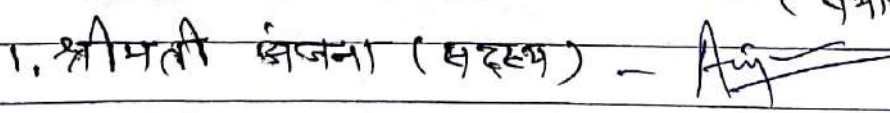 १. श्रीमती अंजना (सदस्य) -